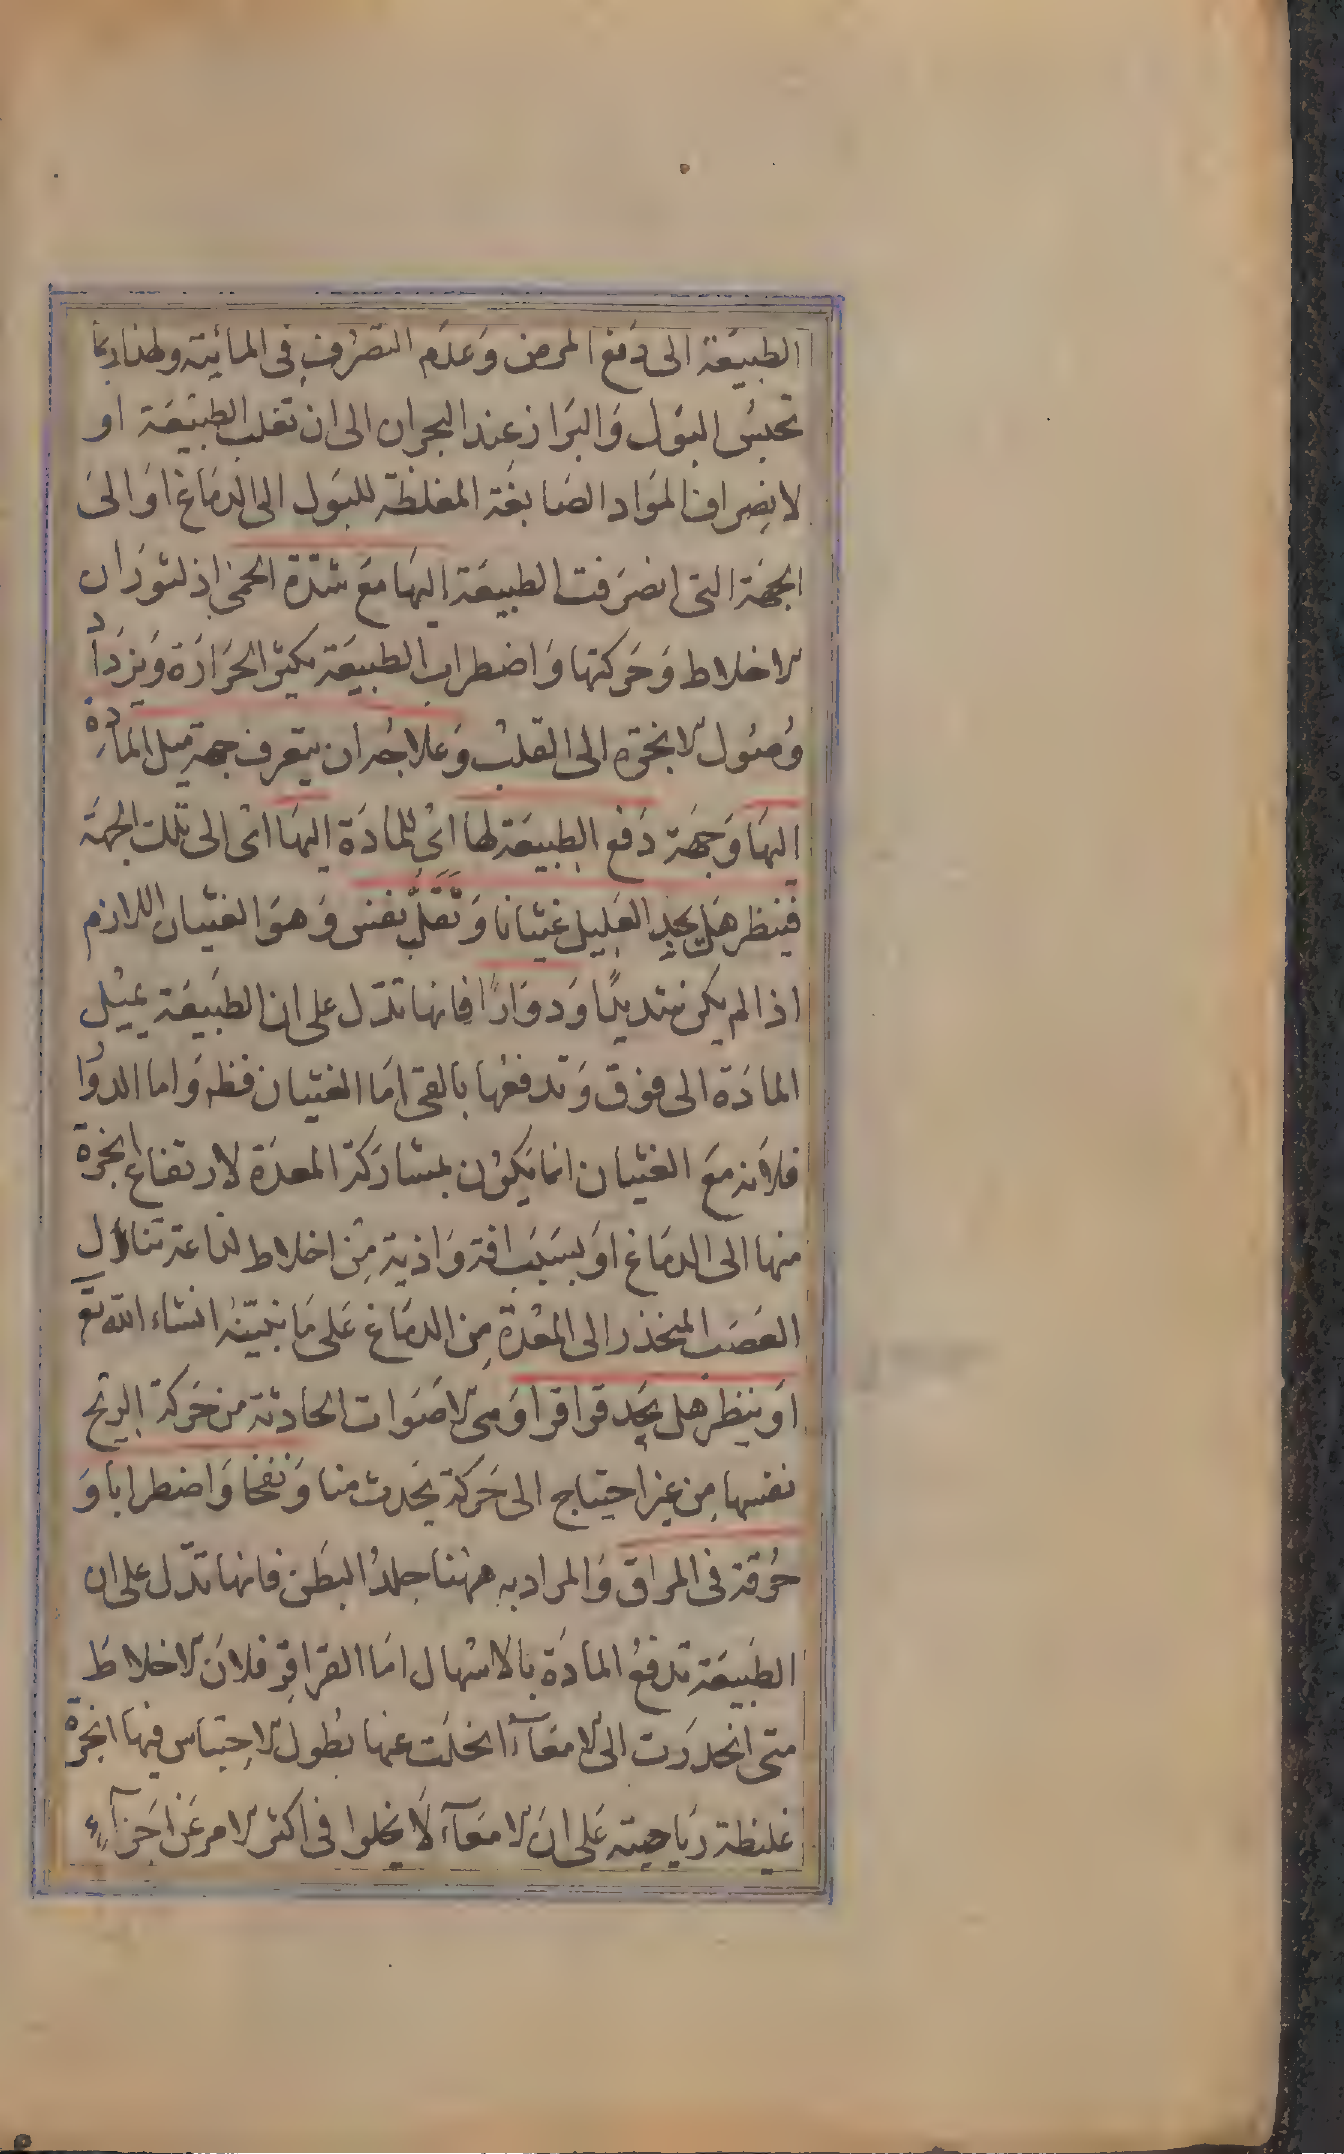 الطبيعَة الى دَفع المرض وَعدَم التصرُّف فى المائية ولهذا ربما
تحبسُ البَول وَالبرَاز عِند البحران الى ان تغلب الطبيَعة او
لانصِراف المَواد الصَابغَة المغلظة للبَول الى الدمَاغ اوَ الىَ
الجهَة التى انصَرفت الطبيعَة اليهَا مَع شدّة الحمى اذ لثورَان
الاخلاط وَحَركتها وَاضطراب الطبيعَة يكثر الحَرارَة وَيزدَاد
وُصُول الابخرة الى القلب وَعلاجُه ان يتعرف جهة ميل المادة
اليهَا وَجهَة دَفع الطبيعَة لها اىْ للمادَة اليهَا اى الى تلك الجهَة
فينظر هَل يجد العَليل غثيانا وَتقلّب نفس وَهوَ الغثيان اللازم
اذا لم يكن شديدًا وَدوَارًا فانها تدّل على ان الطبَيعَة تميْل
المادَة الى فوق وَتدفعُها بالقى امَا الغثيان فظه وَاما الدوَار
فلاَنه مَع الغثيان انما يَكوُن بمشارَكة المعدَة لارتفاع ابخرة
منها الى الدمَاغ اوَ بسَبَب افة وَاذية مِن اخلاط لذاعة تناوُل
العَصَب المنحَدر الى المعْدَة مِن الدمَاغ عَلى مَا نبيّنهُ انشاء الله تع
اوَ ينظر هل يجَد قراقر اوَ هى الاصَوات الحادثة من حَركة الريح
نفسها مِن غير احتياج الى حَركة يحَدث منا وَنفخا وَاضطرابا وَ
حُرقة فى المراق وَالمراد به ههُنا جلدُ البَطن فانها تدّل على ان
الطبَيعَة تدفعُ المادَة بالاسْهال امَا القراقِر فلانَ الاخلاطَ
متى انحدرَت الى الامعَآء انحلت عنها بطُول الاحِتباس فيها ابخرة
غليظة ريَاحية عَلى انَ الامعَآء لاَ يخلوا فى اكثر الامر عَن اجَزآء